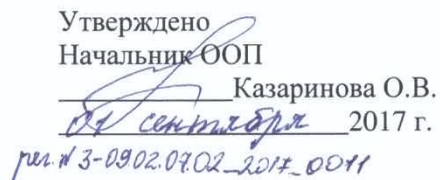 Утверждено
Начальник ООП
Казаринова О.В.
01 сентября 2017 г.
рег. № 3-09.02.07.02_2017_0011